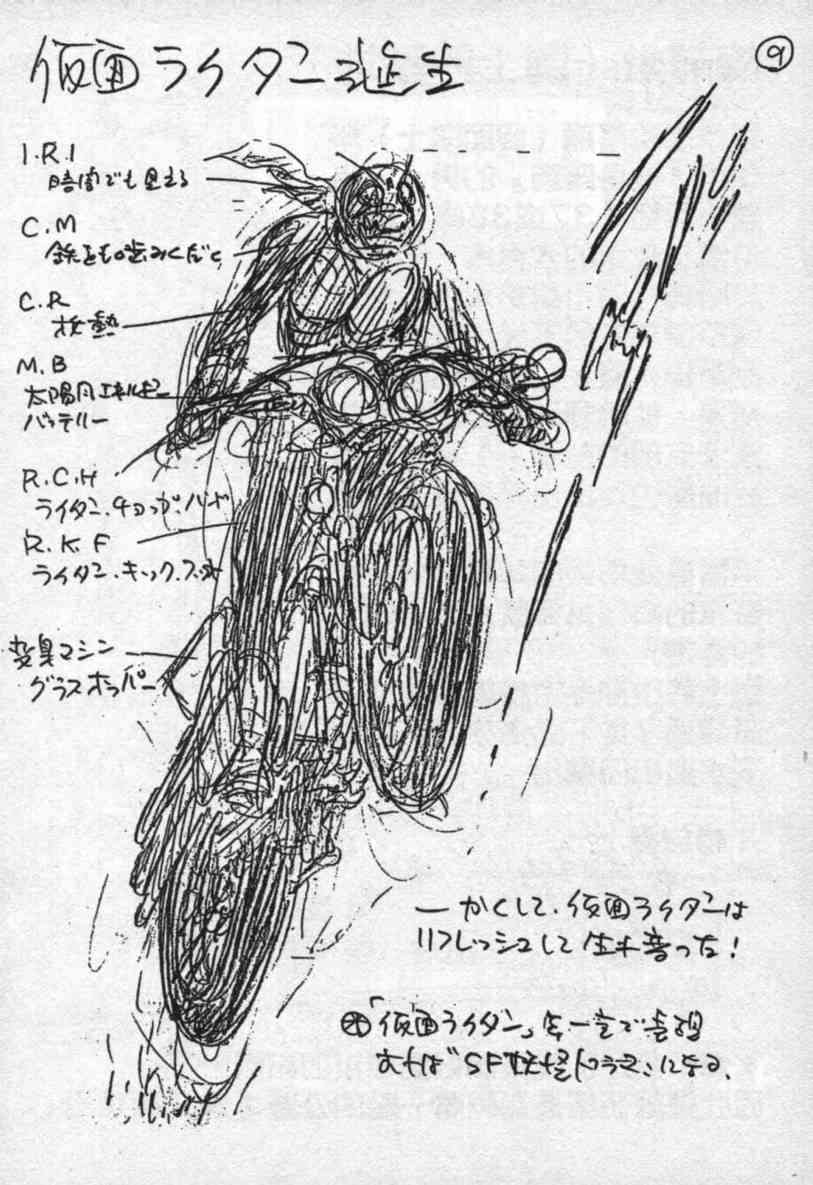 仮面ライダー誕生
⑨
I.R.I
暗闇でも見える
C.M
鉄をも噛みくだく
C.R
放熱
M.B
太陽用エネルギー
バッテリー
R.C.H
ライダー.チョップ.ハンド
R.K.F
ライダー.キック.フット
変身マシン
グラスホッパー
―かくして、仮面ライダーは
リフレッシュして生れ変った!
「仮面ライダー」を一言で表現
すれば"SF怪怪ドラマ"になる。